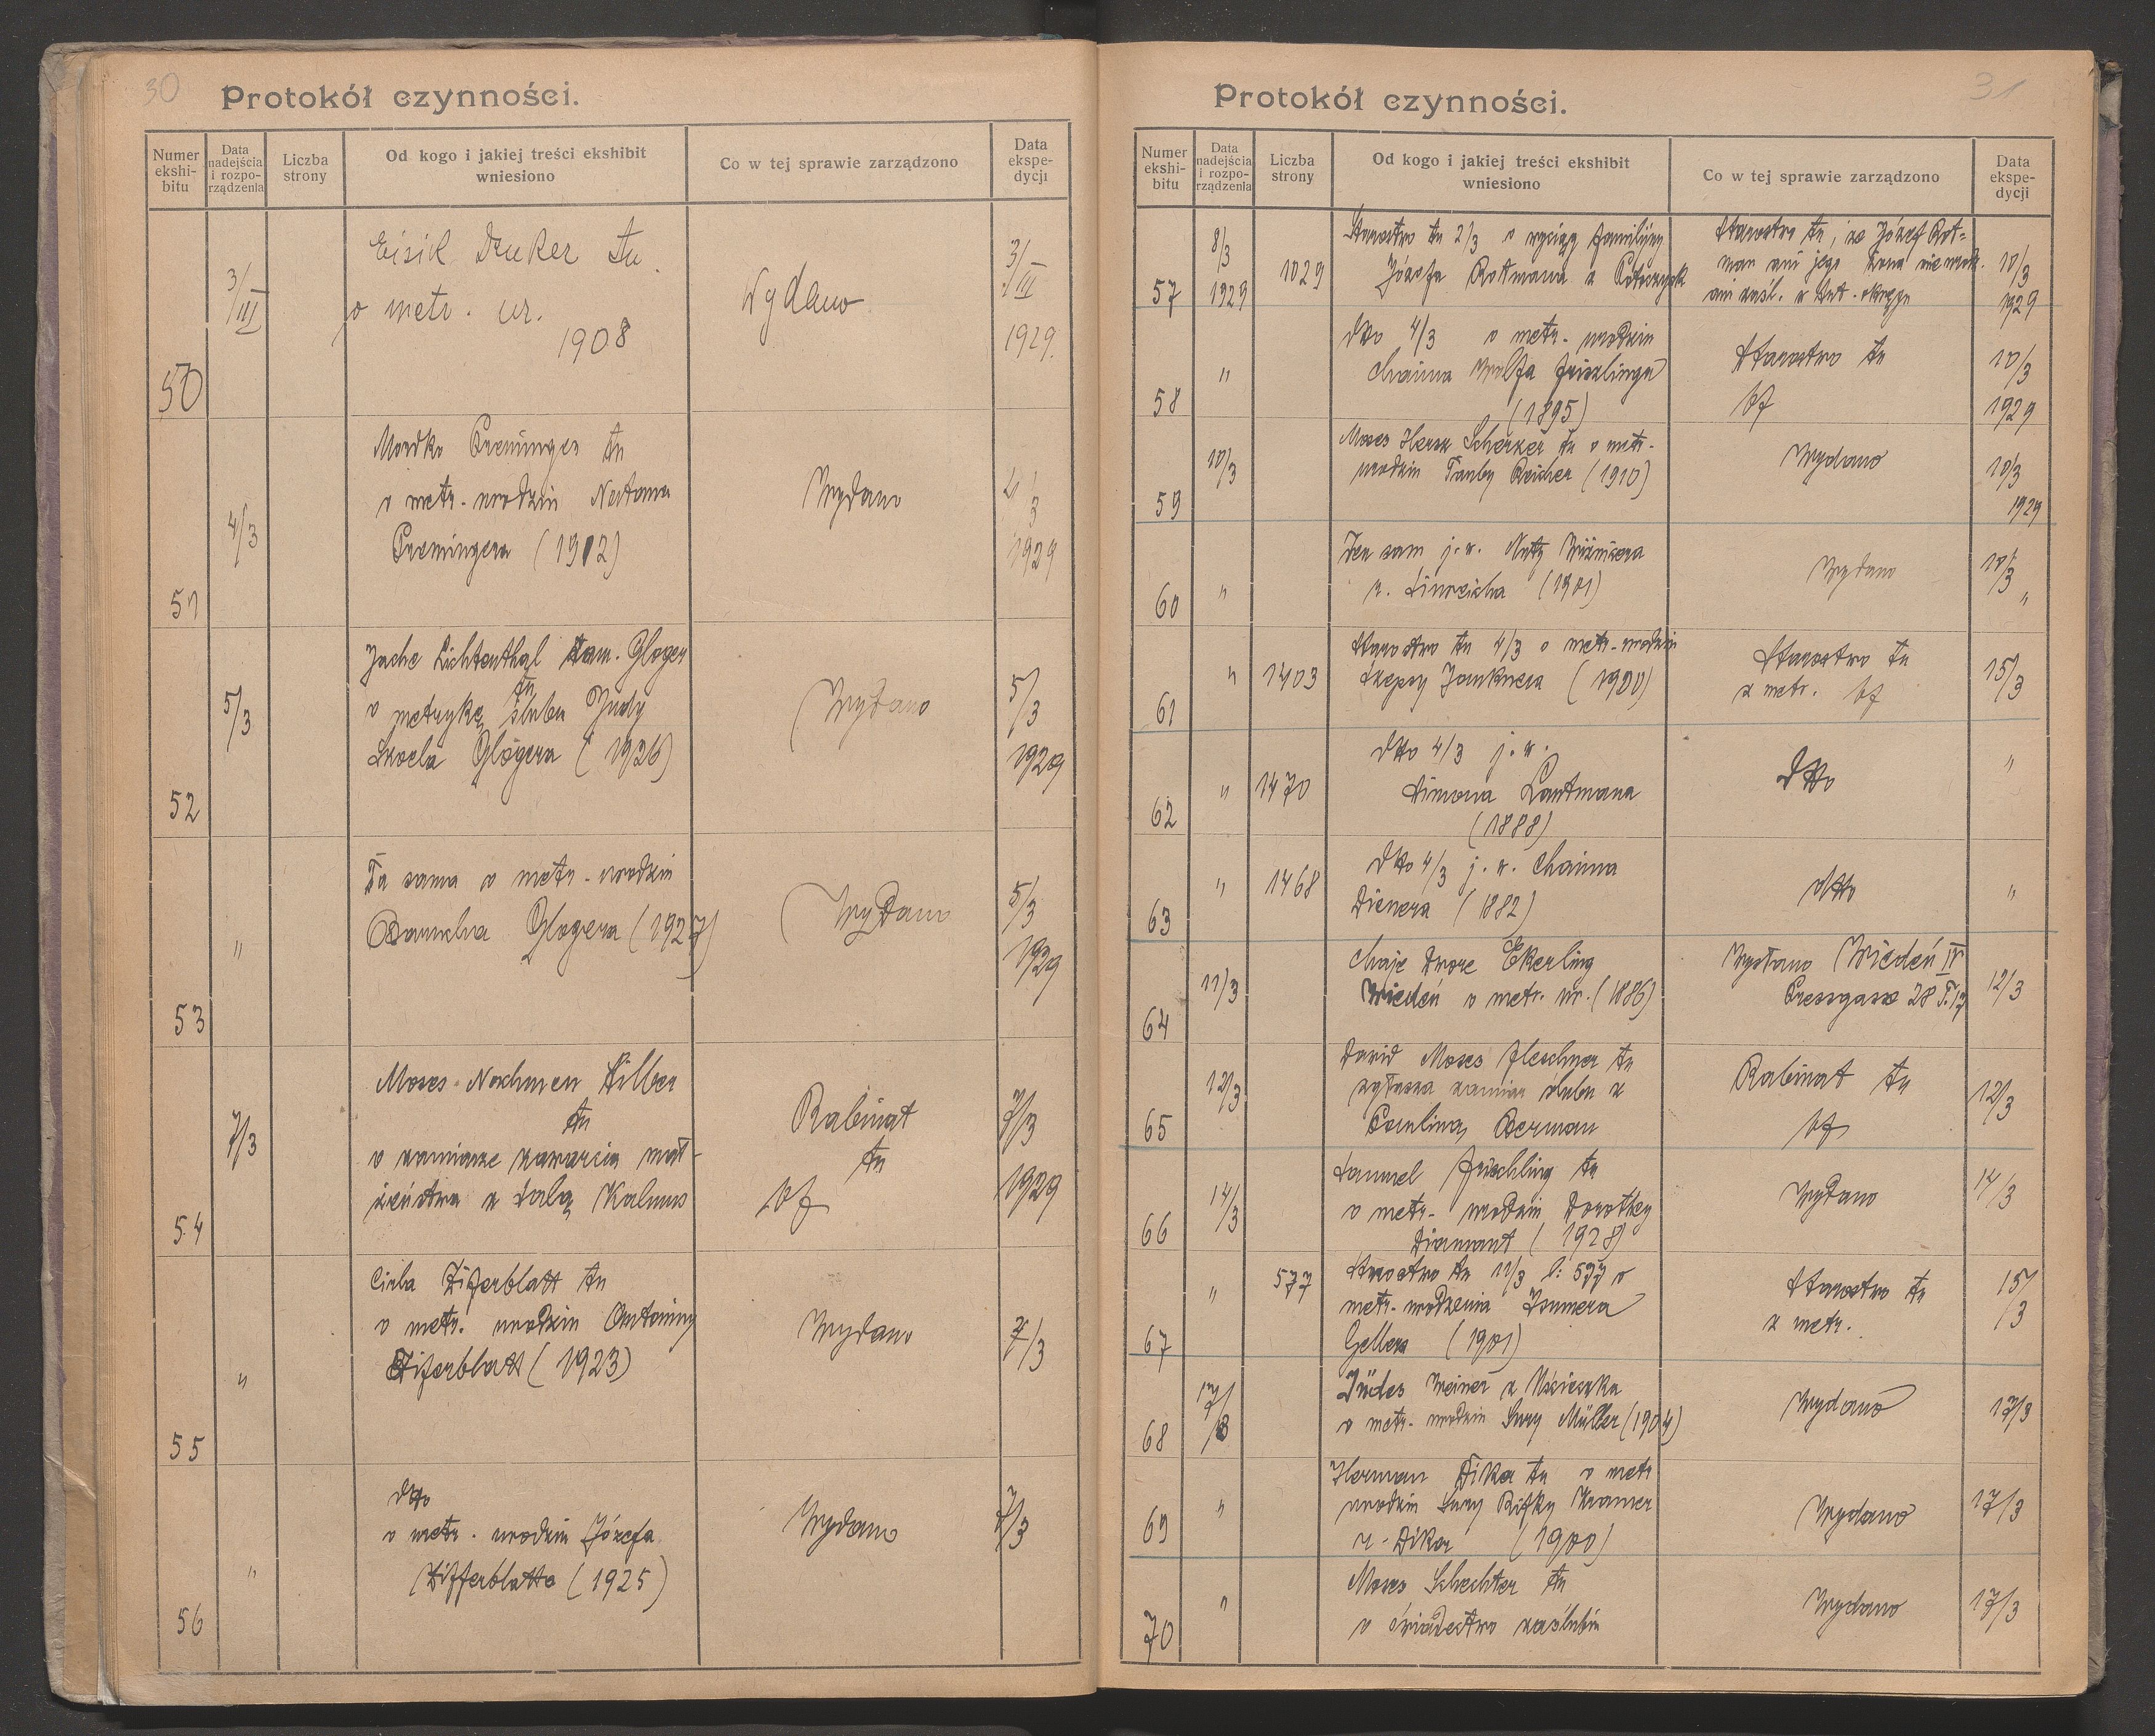 30
Protokół czynności.
Numer ekshi-bitu
Data nadejścia i rozpo-rządzenia
Liczba strony
Od kogo i jakiej treści ekshibit wniesiono
Co w tej sprawie zarządzono
Data ekspe-dycji
3/III
Eisik Druker tu.
o metr. ur.
1908
Wydano
3/III
1929.
50
Mordko Preminger tu
o metr. urodzin Natana
Premingera (1912)
4/3
Wydano
4/3
1929
51
Jache Lichtenthal zam. Gloger
tu
o metrykę ślubu Judy
Sroela Glogera (1926)
5/3
Wydano
5/3
1929
52
Ta sama o metr. urodzin
Barucha Glogera (1927)
"
Wydano
5/3
1929
53
Moses Nachmen Hilber
tu
o zamiarze zawarcia mał-
żeństwa z Salą Kalmus
7/3
Rabinat
tu
7/3
1929
54
Cirla Zifferblatt tu
o metr. urodzin Antoniny
Zifferblatt (1923)
"
Wydano
7/3
55
dtto
o metr. urodzin Józefa
Zifferblatta (1925)
"
Wydano
7/3
56
31
Protokół czynności.
Numer ekshi-bitu
Data nadejścia i rozpo-rządzenia
Liczba strony
Od kogo i jakiej treści ekshibit wniesiono
Co w tej sprawie zarządzono
Data ekspe-dycji
57
8/3
1929
1029
Starostwo tu 2/3 o wyciąg familijny
Józefa Rotmana z Potoczysk
Starostwu tu, że Józef Rot=
man ani jego żona nie
10/3
1929
58
"
dtto 4/3 o metr. urodzin
Chaima Wolfa Frischlinga
(1895)
Starostwo tu
10/3
1929
59
10/3
Moses Hersz Scherzer tu o metr.
urodzin Tauby Reicher (1910)
Wydano
10/3
1929
60
"
Ten sam j.w.
(1901)
Wydano
10/3
"
61
"
1403
Starostwo tu 4/3 o metr. urodzin
Jauknera (1900)
Starostwo tu
z metr.
15/3
62
"
1470
dtto 4/3 j.w.
Simona Lautmana
(1888)
dtto
"
63
"
1468
dtto 4/3 j.w. Chaima
Dienera (1882)
dtto
"
64
11/3
Chaje Dwore Ekerling
Wiedeń o metr. ur. (1886)
Wysłano Wiedeń IV
Pressgasse 28 T. 17
12/3
65
12/3
Dawid Moses Fleschner tu
zgłasza zamiar ślubu z
Pauliną Berman
Rabinat tu
12/3
66
14/3
Samuel Frischling tu
o metr. urodzin Dorothey
Diamant (1928)
Wydano
14/3
67
"
577
Starostwo tu 11/3 l: 577 o
metr. urodzenia Isumera
Gellera (1901)
Starostwo tu
z metr.
15/3
68
17/3
Jüdes Weiner z Uścieczka
o metr. urodzin Sary Müller (1904)
Wydano
17/3
69
"
Herman Diker tu o metr
urodzin Sary Rifky Kramer
r. Diker (1900)
Wydano
17/3
70
"
Moses Schechter tu
o świadectwo zaślubin
Wydano
17/3